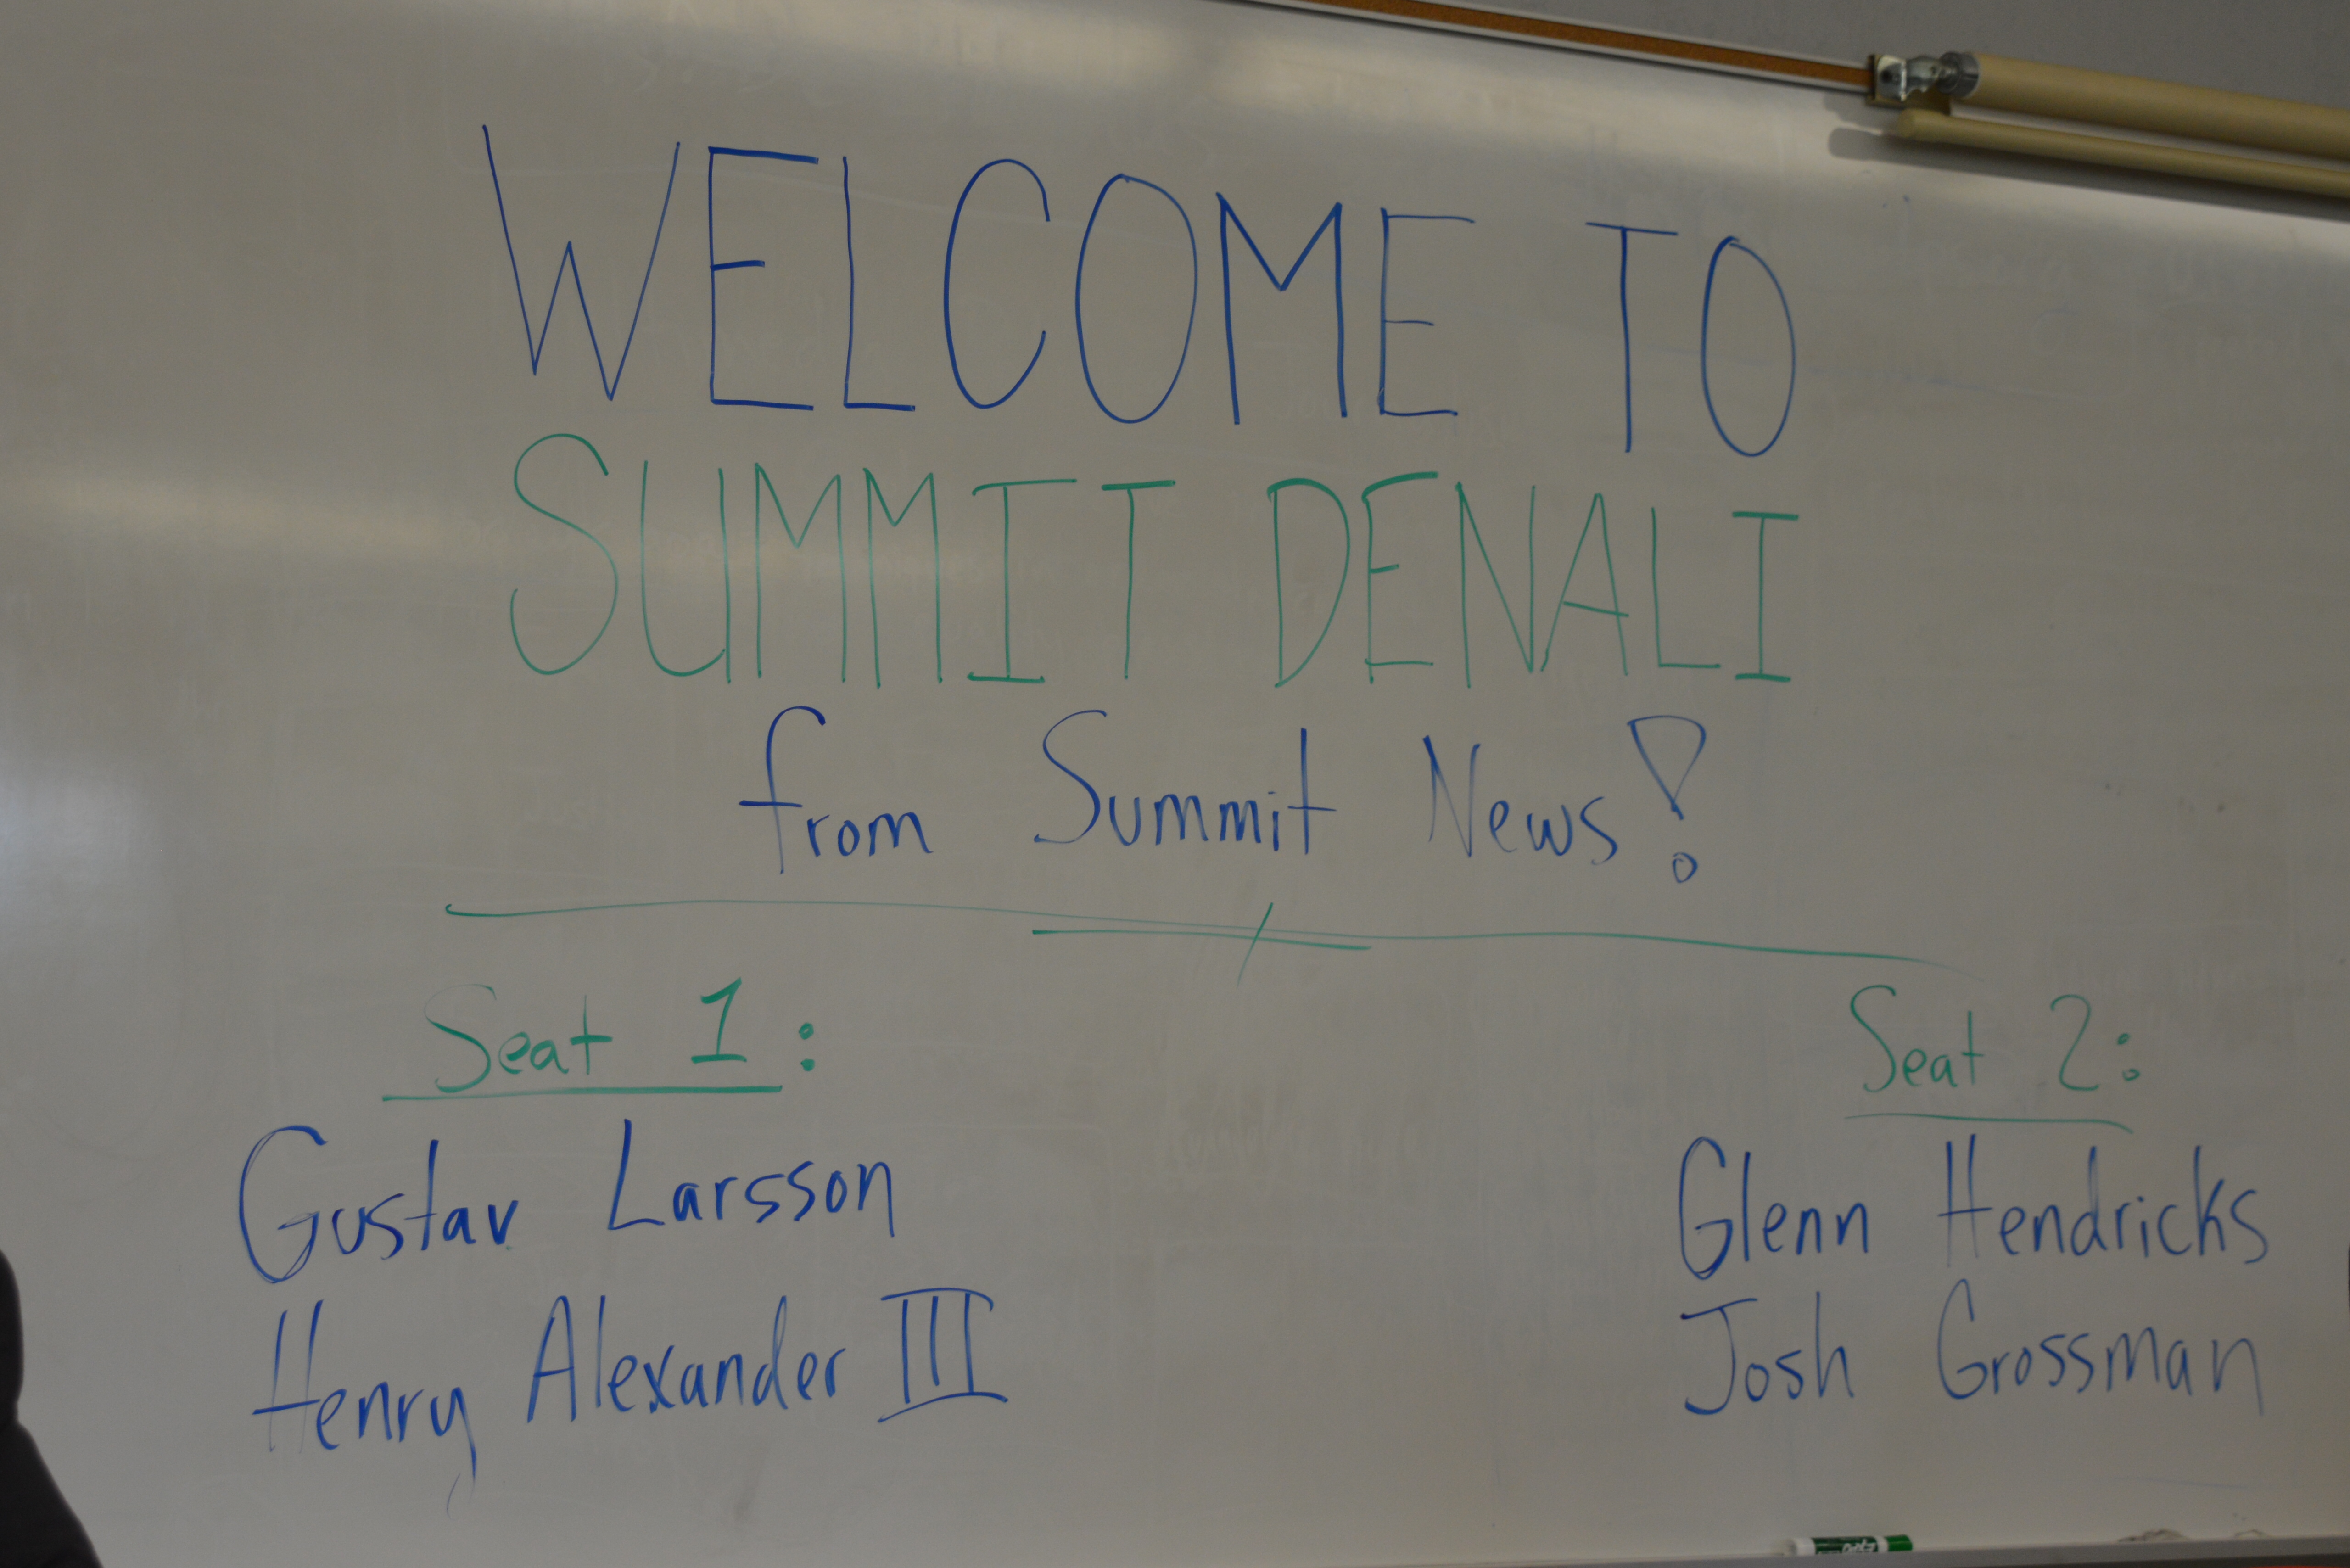 WELCOME TO
SUMMIT DENALI
from Summit News!
Seat 1:
Gustav Larsson
Henry Alexander III
Seat 2:
Glenn Hendricks
Josh Grossman
EXPO